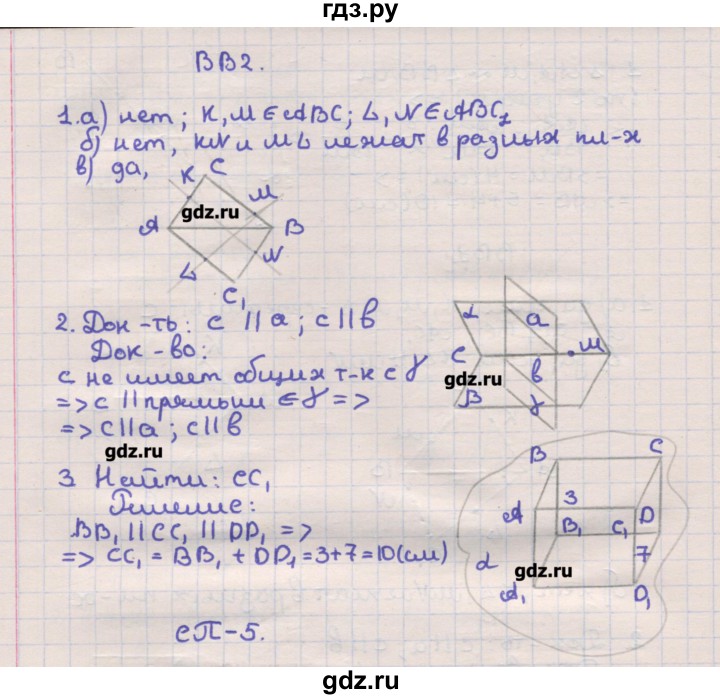 гдз.ру
ВВ2.
1.а) нет; K, M ∈ ABC; L, N ∈ ABC₁
б) нет, KN и ML лежат в разных пл-х
в) да,
K C M
gdz.ru
A B
L N
C₁
2. Док-ть: c || a; c || b
Док-во:
c не имеет общих т-к с γ
=> c || прямым ∈ γ =>
=> c || a; c || b
gdz.ru
α a
C M
gdz.ru
b
B γ
3. Найти: CC₁
Решение:
BB₁ || CC₁ || DD₁ =>
=> CC₁ = BB₁ + DD₁ = 3+7 = 10 (см)
B C
3
A D
B₁ C₁
α 7
gdz.ru
A₁ D₁
СП-5.
gdz.ru